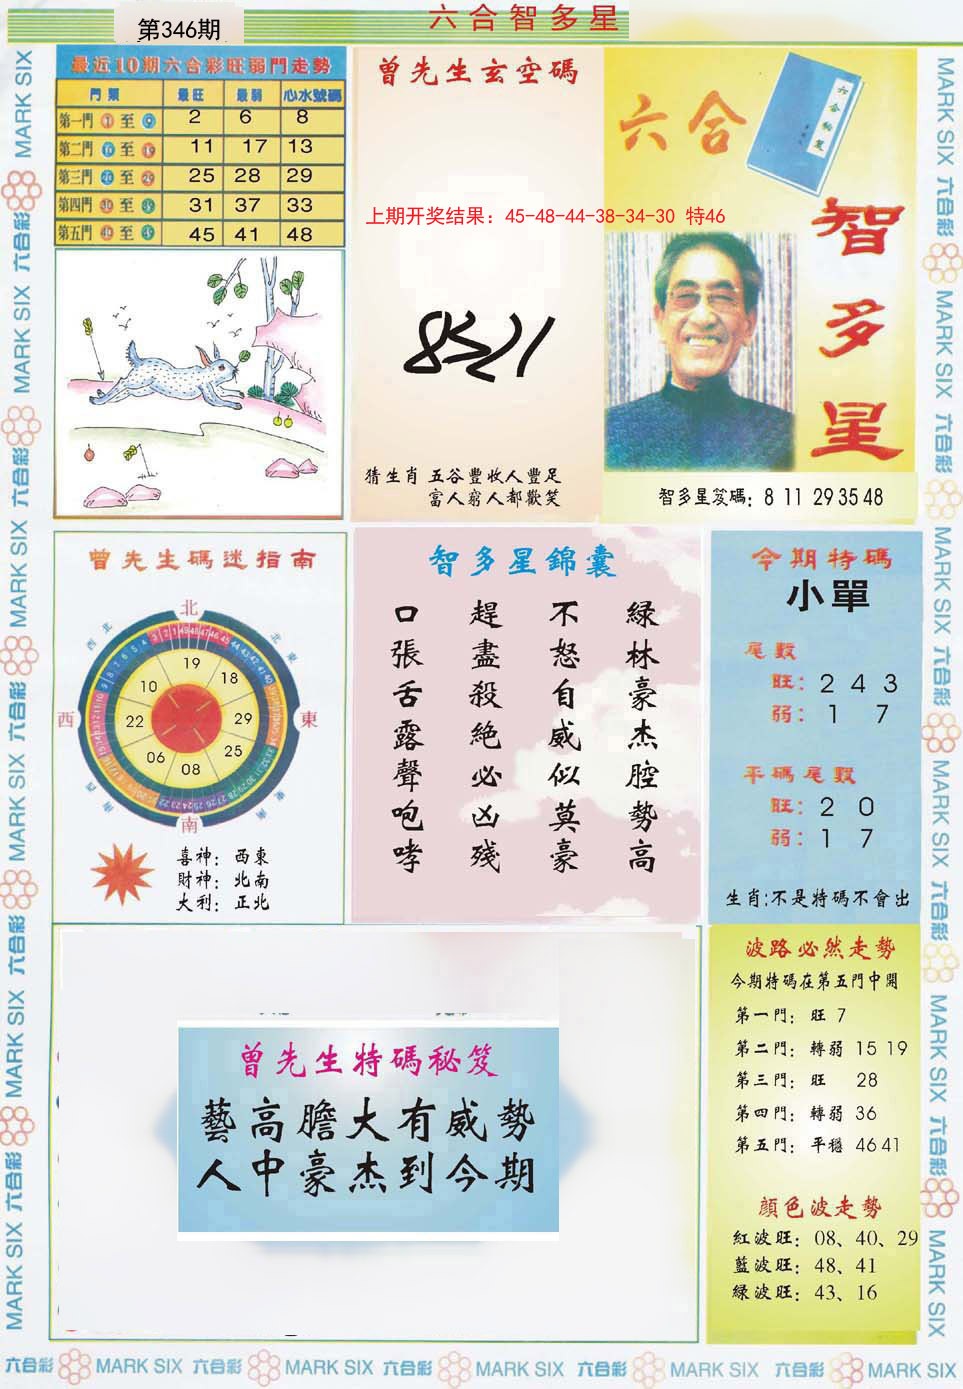 第346期
六合智多星
最近10期六合彩旺弱門走勢
門類 最旺 最弱 心水號碼
第一門 1 至 9 2 6 8
第二門 10 至 19 11 17 13
第三門 20 至 29 25 28 29
第四門 30 至 39 31 37 33
第五門 40 至 49 45 41 48
曾先生玄空碼
上期开奖结果：45-48-44-38-34-30 特46
猜生肖 五谷豐收人豐足
富人窮人都歡笑
六合
智多星
智多星笈碼：8 11 29 35 48
曾先生碼迷指南
北
西北
東北
西
東
西南
東南
南
19
18
29
25
08
06
22
10
喜神：西東
財神：北南
大利：正北
智多星錦囊
綠林豪杰腔勢高
不怒自威似莫豪
趕盡殺絕必凶殘
口張舌露聲咆哮
今期特碼
小單
尾數
旺：2 4 3
弱：1 7
平碼尾數
旺：2 0
弱：1 7
生肖:不是特碼不會出
曾先生特碼秘笈
藝高膽大有威勢
人中豪杰到今期
波路必然走勢
今期特碼在第五門中開
第一門：旺 7
第二門：轉弱 15 19
第三門：旺 28
第四門：轉弱 36
第五門：平穩 46 41
顔色波走勢
紅波旺：08、40、29
藍波旺：48、41
綠波旺：43、16
MARK SIX 六合彩 MARK SIX 六合彩 MARK SIX 六合彩 MARK SIX 六合彩 MARK SIX